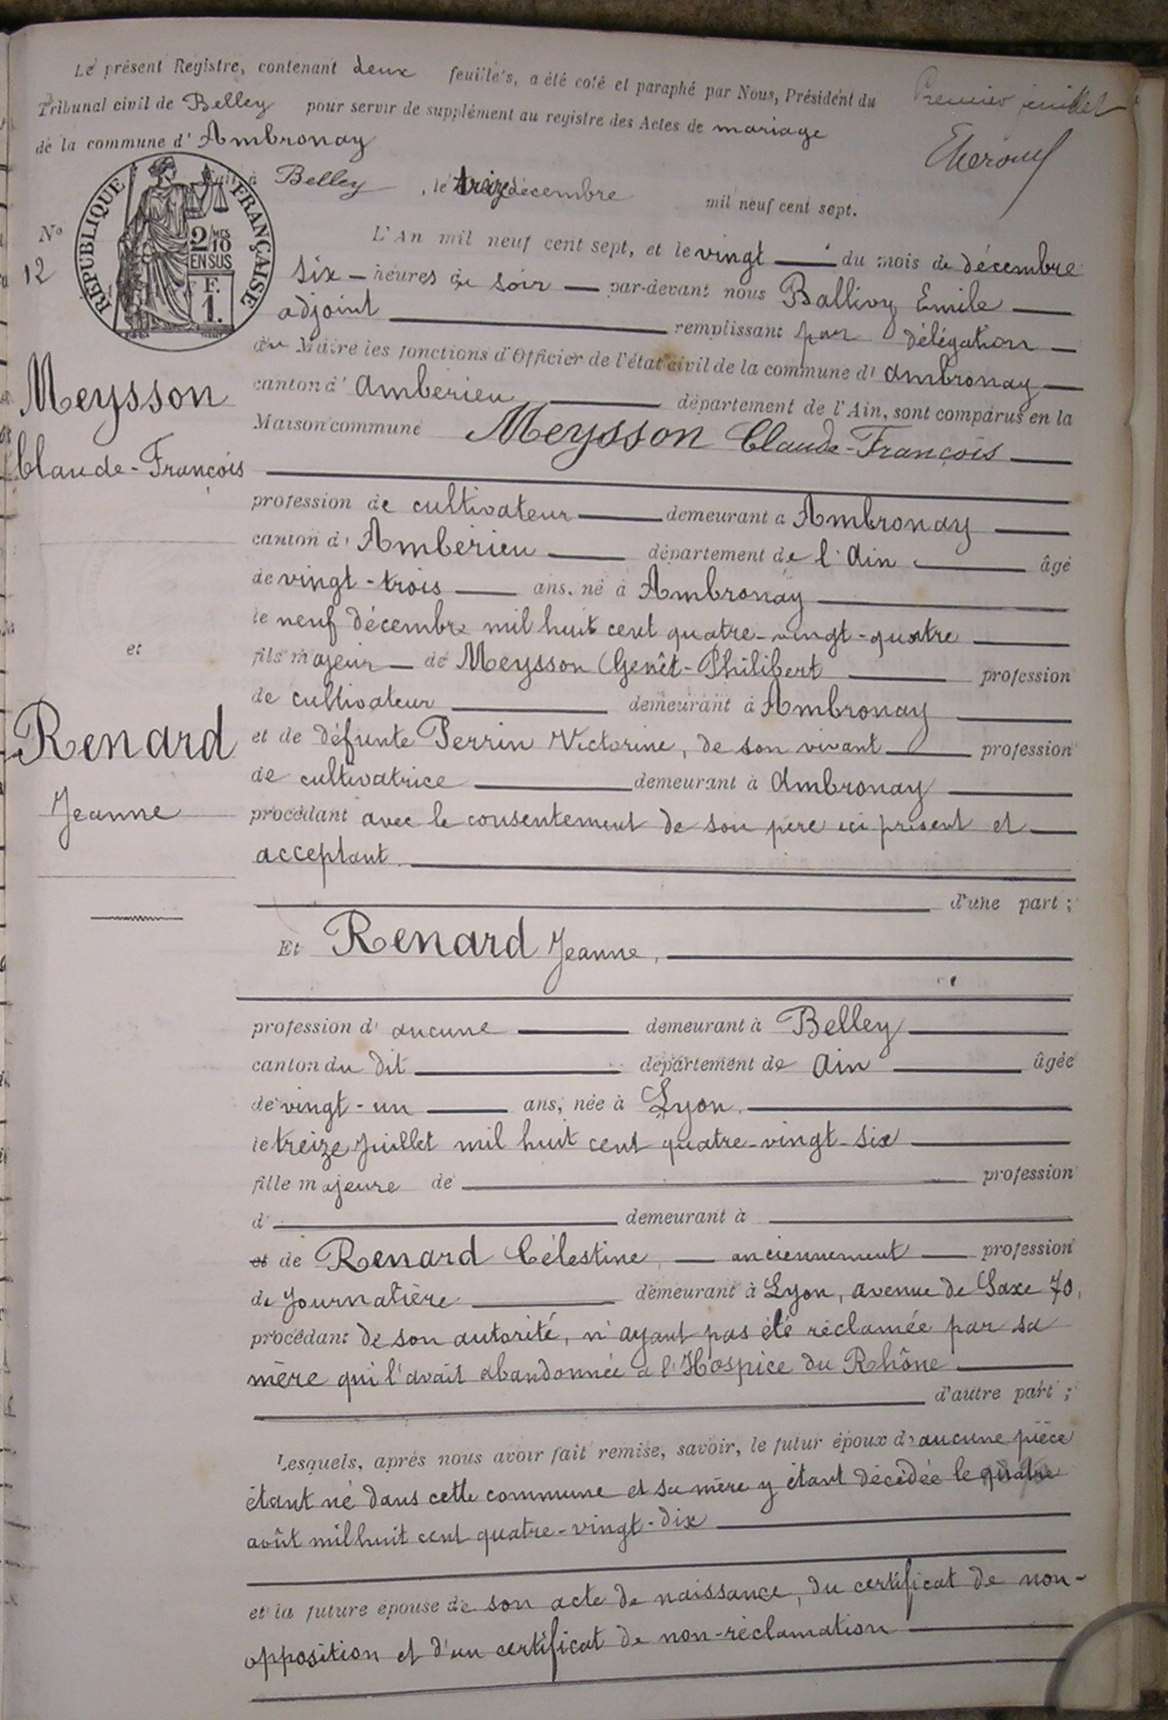 Le présent Registre, contenant deux feuillets, a été coté et paraphé par Nous, Président du
Tribunal civil de Belley pour servir de supplément au registre des Actes de mariage
de la commune d' Ambronay
Premier juillet
Fait à Belley, le treize décembre mil neuf cent sept.
RÉPUBLIQUE FRANÇAISE
2/10 MES
EN SUS
F.
1.
No
12
L'An mil neuf cent sept, et le vingt du mois de décembre
six heures du soir par-devant nous Ballivy Emile
adjoint remplissant par délégation
du Maire les fonctions d'Officier de l'état civil de la commune d' Ambronay
canton d' Ambérieu, département de l'Ain, sont comparus en la
Maison commune Meysson Claude-François
Meysson
Claude-François
profession de cultivateur demeurant à Ambronay
canton d' Ambérieu département de l'Ain âgé
de vingt-trois ans, né à Ambronay
le neuf décembre mil huit cent quatre-vingt-quatre
fils majeur de Meysson Genêt-Philibert profession
de cultivateur demeurant à Ambronay
et de défunte Perrin Victorine, de son vivant profession
de cultivatrice demeurant à Ambronay
procédant avec le consentement de son père ici présent et
acceptant.
d'une part ;
et
Renard
Jeanne
Et Renard Jeanne,
profession d' aucune demeurant à Belley
canton du dit département de Ain âgée
de vingt-un ans, née à Lyon.
le treize Juillet mil huit cent quatre-vingt-six
fille majeure de profession
d' demeurant à
et de Renard Célestine, anciennement profession
de journalière demeurant à Lyon, avenue de Saxe 70,
procédant de son autorité, n'ayant pas été réclamée par sa
mère qui l'avait abandonnée à l'Hospice du Rhône
d'autre part ;
Lesquels, après nous avoir fait remise, savoir, le futur époux d'aucune pièce
étant né dans cette commune et sa mère y étant décédée le quatre
août mil huit cent quatre-vingt-dix
et la future épouse de son acte de naissance, du certificat de non-
opposition et d'un certificat de non-réclamation